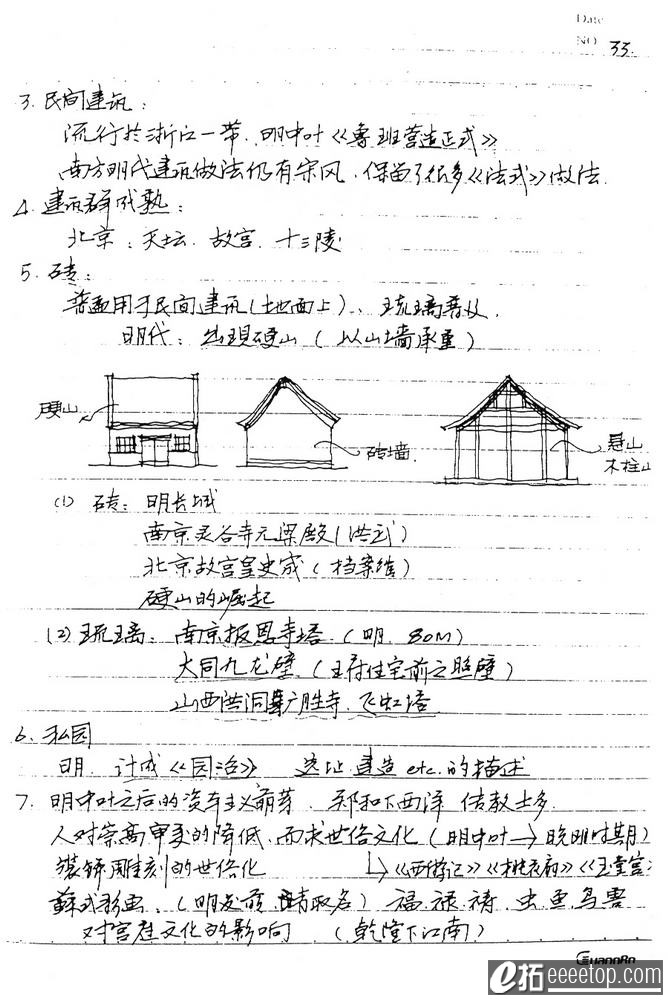 Date
NO 33.
3. 民间建筑：
流行於浙江一带．明中叶《鲁班营造正式》
南方明代建筑做法仍有宋风．保留了很多《法式》做法．
4. 建筑群成熟：
北京：天坛．故宫．十三陵
5. 砖：
普遍用于民间建筑(地面上)、琉璃普及．
明代：出現硬山 (以山墙承重)
硬山
砖墙．
悬山
木柱山
(1) 砖：明长城
南京灵谷寺无梁殿 (洪武)
北京故宫皇史宬 (档案馆)
硬山的崛起
(2) 琉璃：南京报恩寺塔．(明．80M)
大同九龙壁．(王府住宅前之照壁)
山西洪洞广胜寺．飞虹塔
6. 私园
明．计成《园冶》 选址．建造 etc. 的描述
7. 明中叶之后的资本主义萌芽．郑和下西洋 传教士多．
人对崇高审美的降低．而求世俗文化 (明中叶→晚明时期)
装饰雕刻的世俗化 ↳《西游记》《桃花扇》《玉堂
蘇式彩画．(明 清取名) 福．禄 祷．虫．鱼．鸟
对宫庭文化的影响 (乾隆下江南)
GuangBo
e拓 eeeetop.com